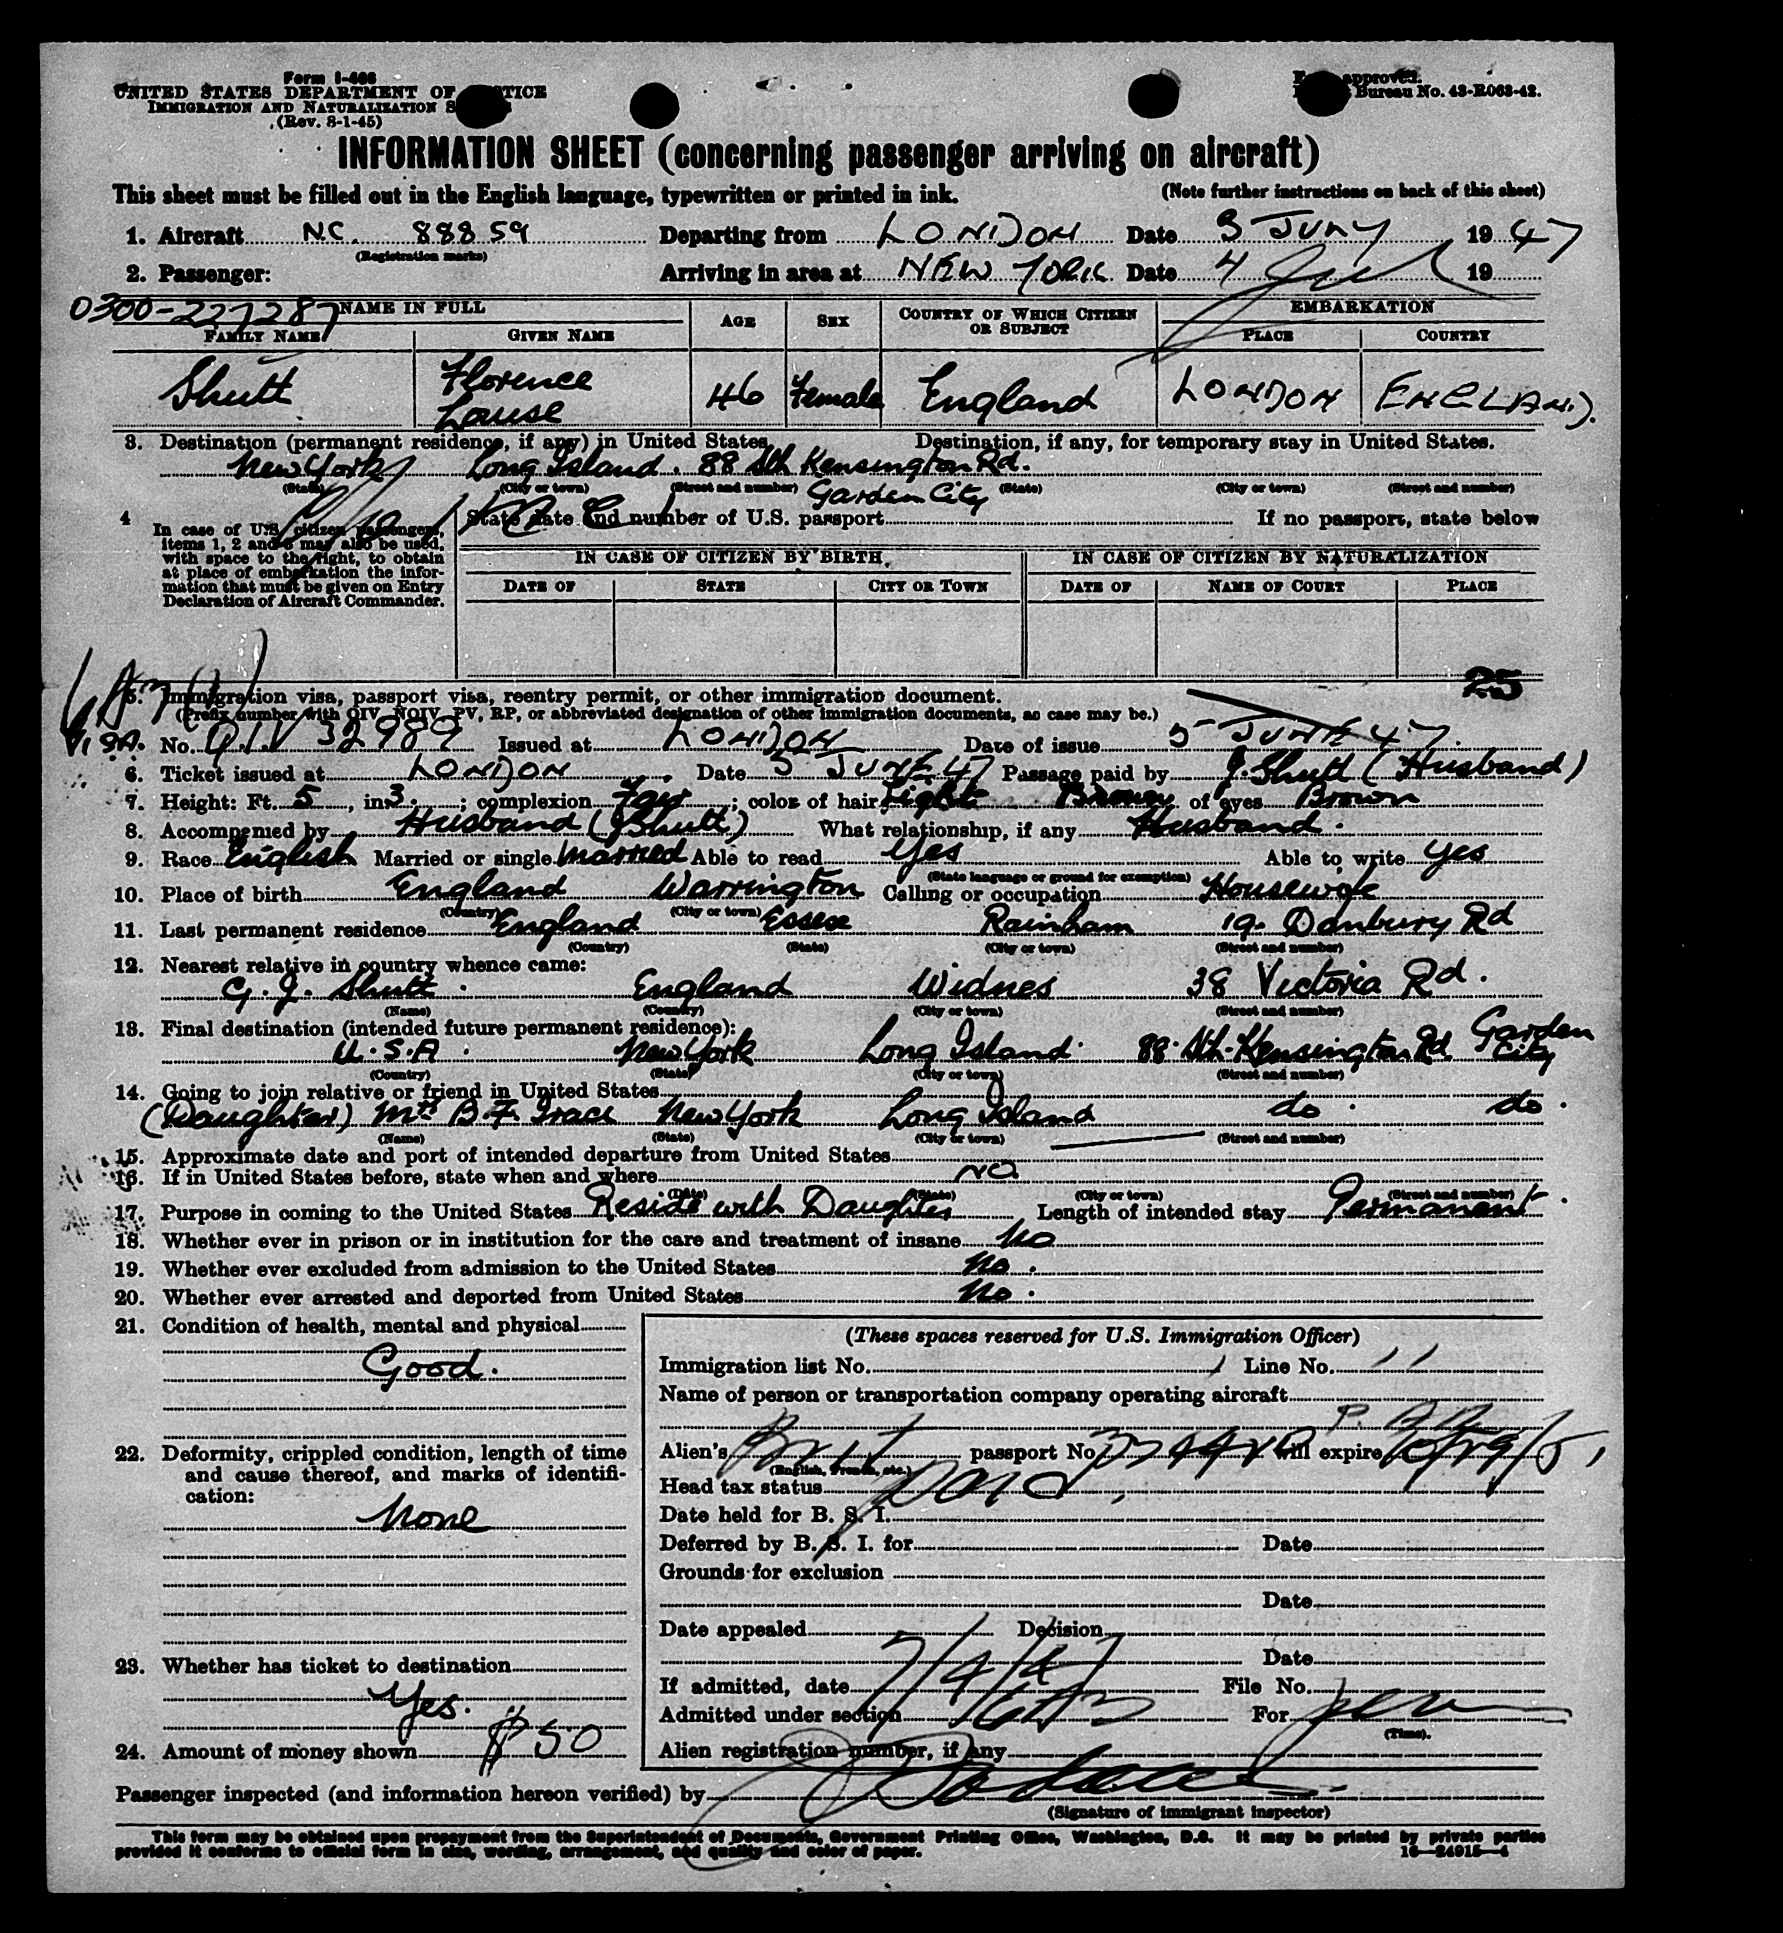 Form I-466
UNITED STATES DEPARTMENT OF JUSTICE
IMMIGRATION AND NATURALIZATION
(Rev. 8-1-45)
approved.
Bureau No. 43-R063-42.
INFORMATION SHEET (concerning passenger arriving on aircraft)
This sheet must be filled out in the English language, typewritten or printed in ink. (Note further instructions on back of this sheet)
1. Aircraft N.C. 88859 Departing from LONDON Date 3 JULY 1947
(Registration marks)
2. Passenger: Arriving in area at NEW YORK Date 4 Jul 19
0300-227287 NAME IN FULL AGE SEX COUNTRY OF WHICH CITIZEN OR SUBJECT EMBARKATION
FAMILY NAME GIVEN NAME PLACE COUNTRY
Shutt Florence Louise 46 Female England LONDON ENGLAND.
3. Destination (permanent residence, if any) in United States Destination, if any, for temporary stay in United States.
New York Long Island. 88 Sth Kensington Rd.
(State) (City or town) (Street and number) Garden City (State) (City or town) (Street and number)
4 In case of U.S. citizen passengers, items 1, 2 and 3 may also be used, with space to the right, to obtain at place of embarkation the information that must be given on Entry Declaration of Aircraft Commander.
State date and number of U.S. passport If no passport, state below
IN CASE OF CITIZEN BY BIRTH IN CASE OF CITIZEN BY NATURALIZATION
DATE OF STATE CITY OR TOWN DATE OF NAME OF COURT PLACE
25
5. Immigration visa, passport visa, reentry permit, or other immigration document.
(Prefix number with QIV, NQIV, PV, RP, or abbreviated designation of other immigration documents, as case may be.)
VISA. No. Q.I.V 32989 Issued at LONDON Date of issue 5 JUNE 47.
6. Ticket issued at LONDON. Date 5 JUNE 47 Passage paid by J. Shutt (Husband)
7. Height: Ft. 5, in. 3.; complexion Fair; color of hair Light Brown of eyes Brown
8. Accompanied by Husband (J Shutt) What relationship, if any Husband.
9. Race English Married or single Married Able to read Yes Able to write Yes
(State language or ground for exemption)
10. Place of birth England Warrington Calling or occupation Housewife
(Country) (City or town)
11. Last permanent residence England Essex Rainham 19. Danbury Rd
(Country) (State) (City or town) (Street and number)
12. Nearest relative in country whence came:
G. J. Shutt. England Widnes 38 Victoria Rd.
(Name) (Country) (City or town) (Street and number)
13. Final destination (intended future permanent residence):
U.S.A. New York Long Island. 88. Sth. Kensington Rd Garden City
(Country) (State) (City or town) (Street and number)
14. Going to join relative or friend in United States
(Daughter) Mrs B.F. New York Long Island do. do.
(Name) (State) (City or town) (Street and number)
15. Approximate date and port of intended departure from United States
16. If in United States before, state when and where NO.
(Date) (State) (City or town) (Street and number)
17. Purpose in coming to the United States Reside with Daughter Length of intended stay Permanent.
18. Whether ever in prison or in institution for the care and treatment of insane No
19. Whether ever excluded from admission to the United States No.
20. Whether ever arrested and deported from United States No.
21. Condition of health, mental and physical
Good.
22. Deformity, crippled condition, length of time and cause thereof, and marks of identification:
None
23. Whether has ticket to destination
Yes.
24. Amount of money shown $50
(These spaces reserved for U.S. Immigration Officer)
Immigration list No. 1 Line No. 11
Name of person or transportation company operating aircraft
P. A. A.
Alien's Brit passport No. will expire
(English, French, etc.)
Head tax status paid
Date held for B. S. I.
Deferred by B. S. I. for Date
Grounds for exclusion
Date
Date appealed Decision
Date
If admitted, date 7/4/47 File No.
Admitted under section 6A3 For perm
(Time).
Alien registration number, if any
Passenger inspected (and information hereon verified) by
(Signature of immigrant inspector)
This form may be obtained upon prepayment from the Superintendent of Documents, Government Printing Office, Washington, D.C. It may be printed by private parties
provided it conforms to official form in size, wording, arrangement, and quality and color of paper. 16—24915—4